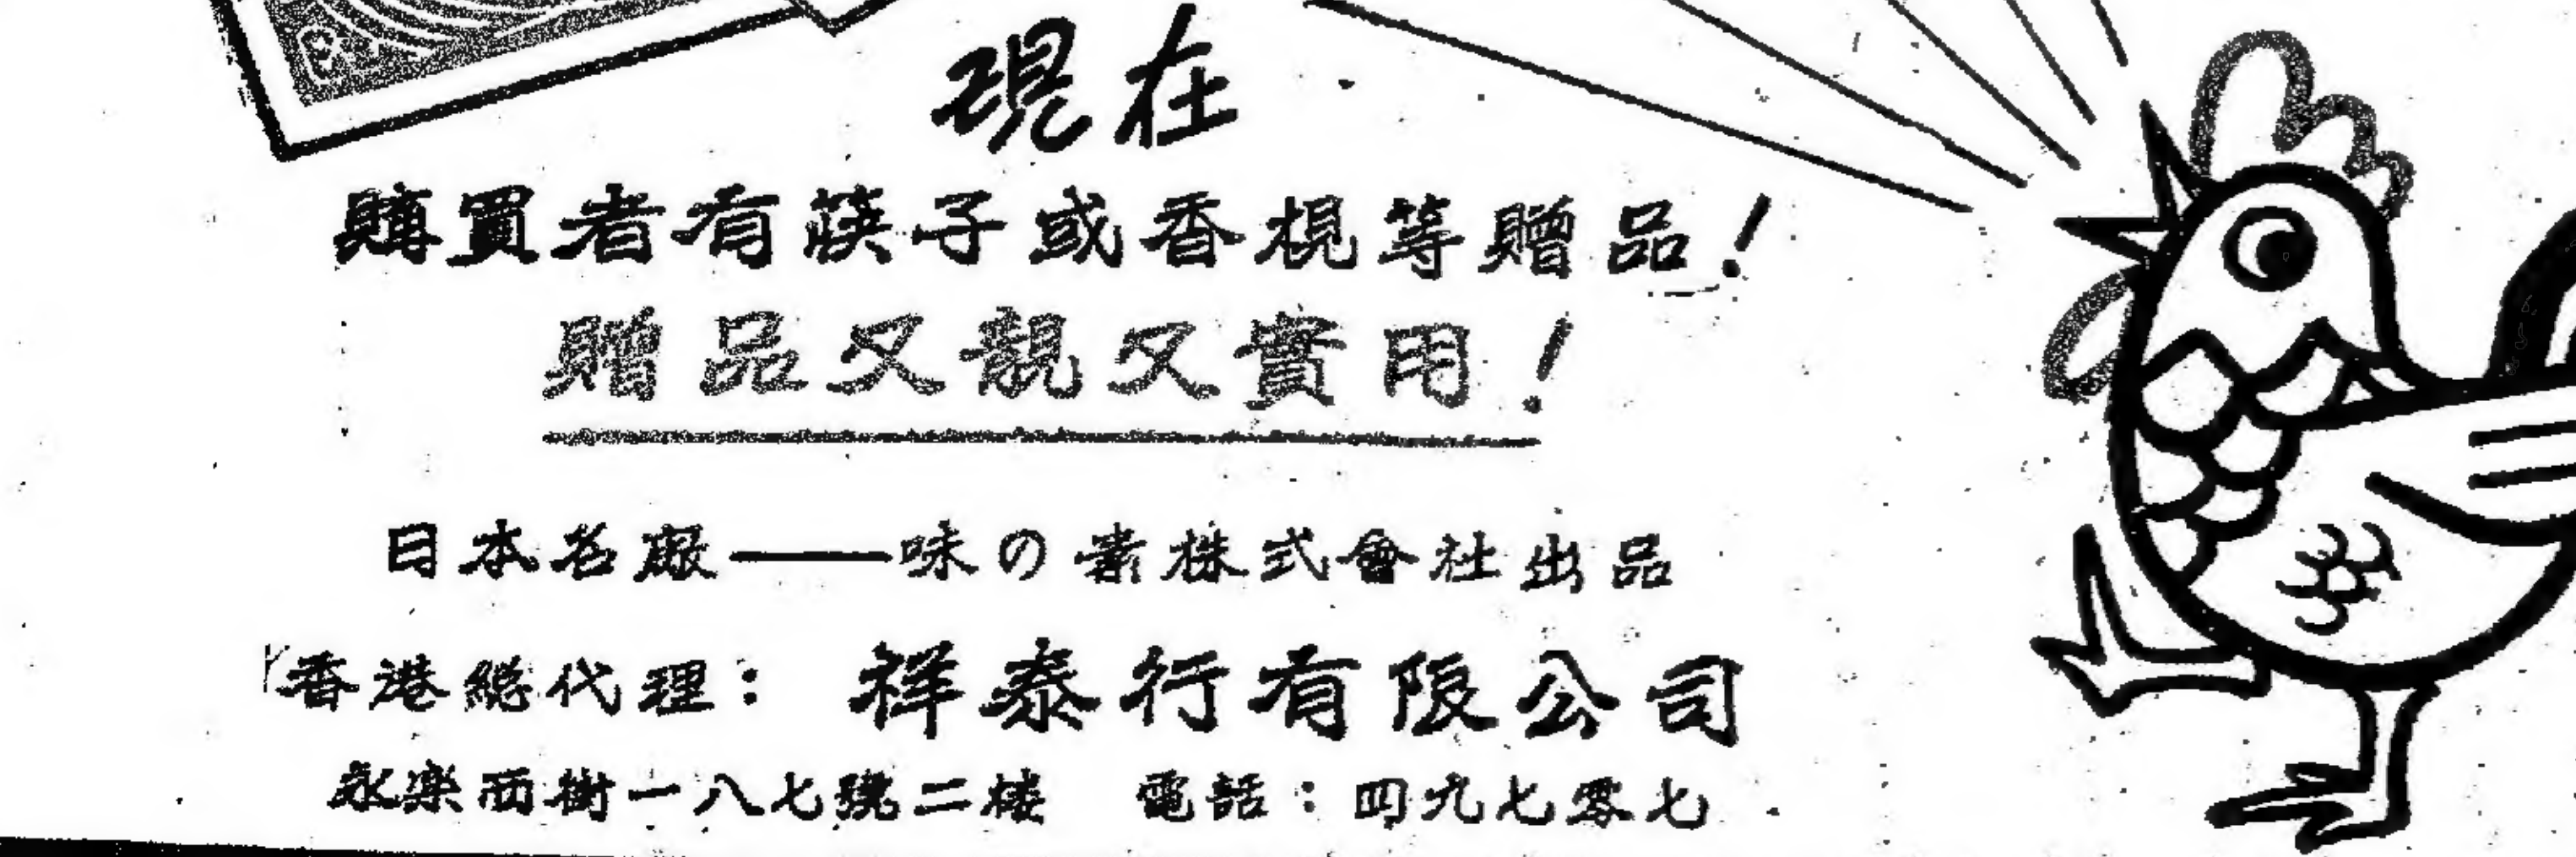 現在
購買者有筷子或香梘等贈品！
贈品又靚又實用！
日本名廠——味の素株式會社出品
香港總代理：祥泰行有限公司
永樂西街一八七號二楼　電話：四九七零七